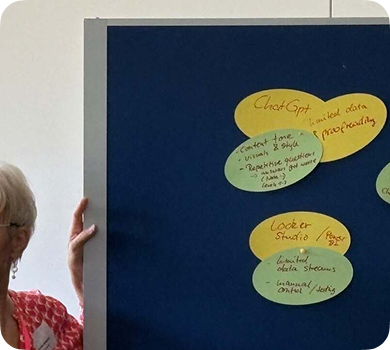 ChatGpt
limited data
& proofreading
- Content tone
- visuals & style
- Repetitive questions
→ answers get worse
Looker
Studio / Power
BI
- Limited
data streams
- manual
control /